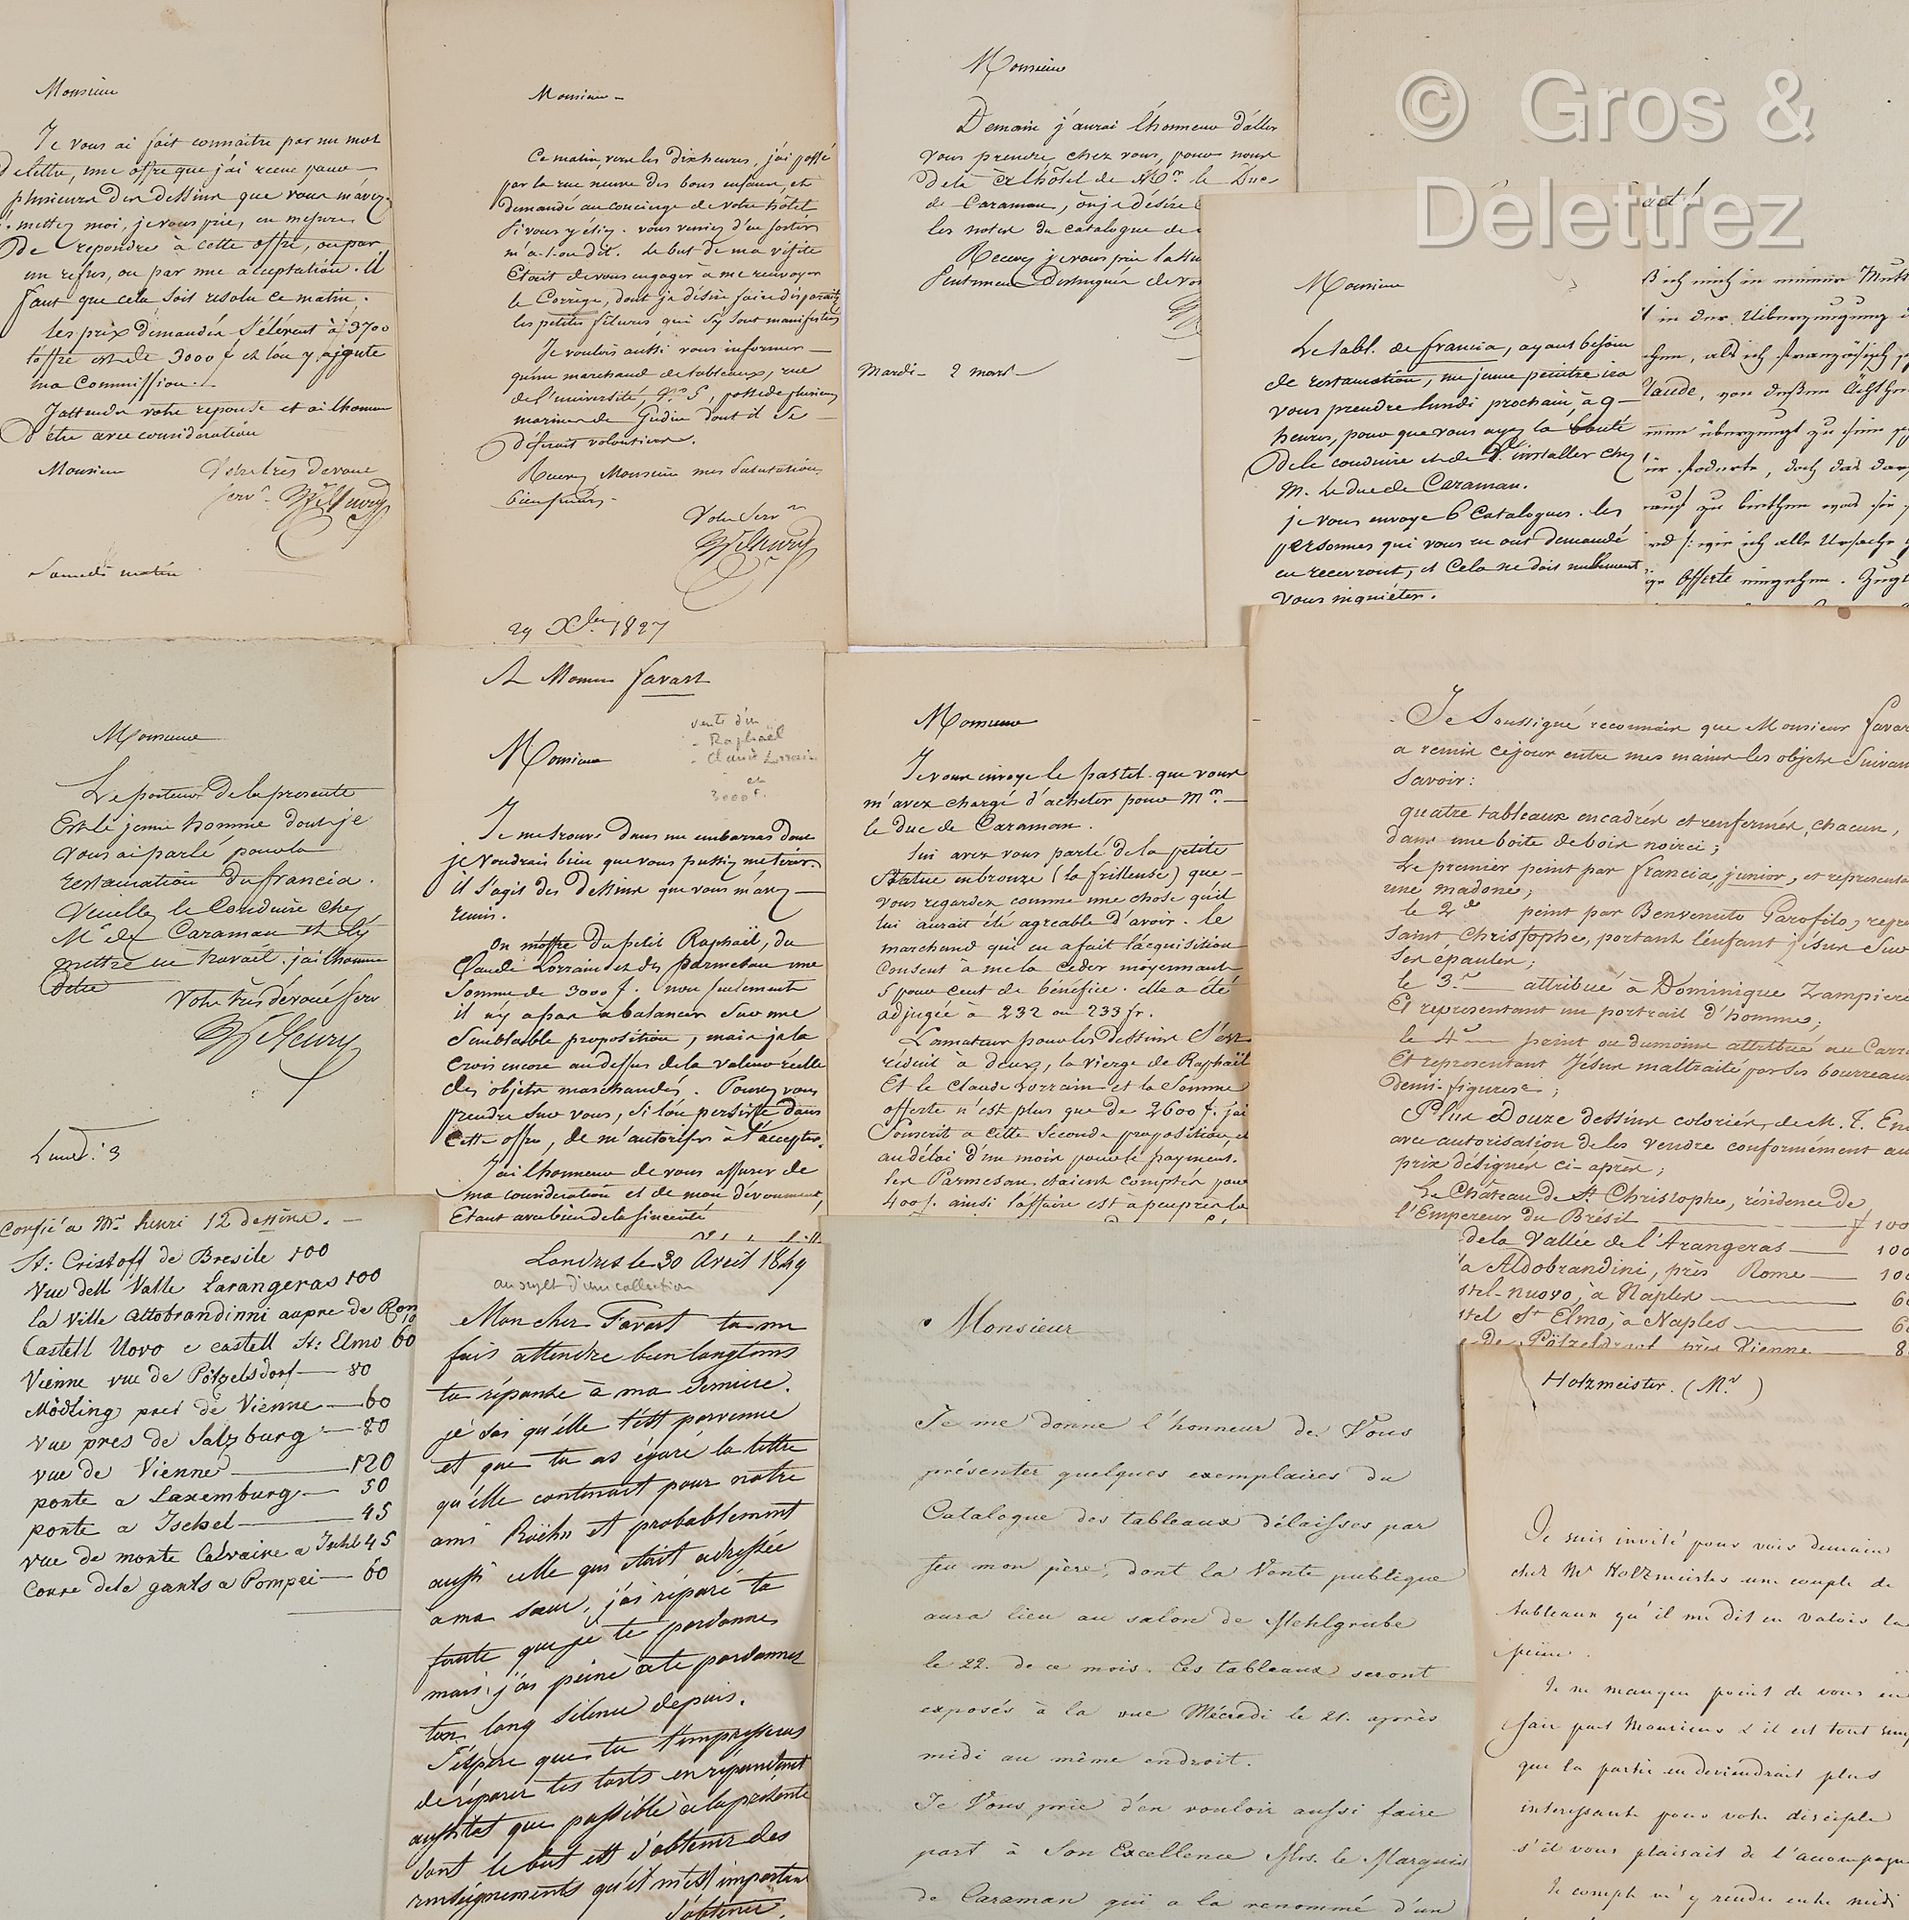 © Gros &
Delettrez
Monsieur
Je vous ai fait connaitre par un mot
de lettre, une offre que j'ai recue pour
plusieurs des dessins que vous m'avez
mettez moi, je vous prie, en mesure
de repondre à cette offre, ou par
un refus, ou par une acceptation. il
faut que cela soit resolu ce matin.
les prix demandés s'élèvent à 3700
l'offre est de 3000 f et l'on y ajoute
ma Commission.
J'attendu votre reponse et ai lhonneur
d'être avec consideration
Monsieur Votre très devoué
serv.
Samedi matin
Monsieur
Ce matin, vers les dix heures, j'ai passé
par la rue neuve des bons enfans, et
demandé au concierge de votre hôtel
si vous y étiez. vous veniez d'en sortir
m'a-t-on dit. Le but de ma visite
Etait de vous engager à me renvoyer
le Corrège, dont je désire faire disparaitre
les petites filures qui s'y sont manifestées
Je voulois aussi vous informer
qu'un marchand de tableaux, rue
de l'université, No 5, possède plusieurs
marines de Gudin dont il se
déferait volontiers.
Recevez Monsieur mes salutations
bien sincères.
Votre Serv.
29 Xbre 1827
Monsieur
Demain j'aurai lhonneur d'aller
vous prendre chez vous, pour nous
de là à l'hôtel de Mr. le Duc
de Caraman, où je désire
les notes du catalogue de
Recevez je vous prie l'assu
sentimens distingués de vo
Mardi 2 mars
Monsieur
Le tabl. de francia, ayant besoin
de restauration, un jeune peintre ira
vous prendre lundi prochain, à 9
heures, pour que vous ayez la bonté
de le conduire et de l'installer chez
M. Le duc de Caraman.
je vous envoye 6 Catalogues. les
personnes qui vous en ont demandé
en recevront, et Cela ne doit nullement
vous inquiéter.
ß ich mich in meiner Mutt
in der Ueberzeugung
chen, als ich französisch
laude, von deßen Ächthe
überzeugt zu sein
forderte, doch das
auf zu biethen und
wie ich alle Ursache
Offerte eingehen.
Monsieur
Le porteur de la presente
Est le jeune homme dont je
vous ai parlé pour la
restauration du francia.
Veuillez le Conduire chez
Mr de Caraman et le
mettre en travail. j'ai lhonneur
d'etre
Votre très dévoué serv
Lundi 3
A Monsieur favart
vente d'un
- Raphaël
- Claude Lorrain
et
3000 f.
Monsieur
Je me trouve dans un embarras dont
je voudrais bien que vous pussiez me tirer.
il s'agit des dessins que vous m'avez
remis.
on m'offre du petit Raphaël, du
Claude Lorrain et des parmesan une
Somme de 3000 f. non seulement
il n'y a pas à balancer sur une
Semblable proposition, mais je la
crois encore au dessus de la valeur réelle
des objets marchandés. Pouvez vous
prendre sur vous, si l'on persiste dans
cette offre, de m'autoriser à l'accepter.
J'ai lhonneur de vous assurer de
ma consideration et de mon dévouement,
Monsieur
Je vous envoye le pastel que vous
m'avez chargé d'acheter pour Mr.
le duc de Caraman.
lui avez vous parlé de la petite
Statue en bronze (la frilleuse) que
vous regardez comme une chose qu'il
lui aurait été agreable d'avoir. le
marchand qui en a fait l'acquisition
Consent à me la ceder moyennant
5 pour cent de bénéfice. elle a été
adjugée à 232 ou 233 fr.
L'amateur pour les dessins s'est
réduit à deux, la vierge de Raphaël
Et le Claude Lorrain et la Somme
offerte n'est plus que de 2600 f. j'ai
Souscrit à cette seconde proposition, et
au délai d'un mois pour le payement.
les Parmesan étaient comptés pour
400 f. ainsi l'affaire est à peu près la
Je Soussigné reconnais que Monsieur favar
a remis ce jour entre mes mains les objets Suivan
Savoir :
quatre tableaux encadrés et renfermés, chacun,
dans une boite de bois noirci;
Le premier peint par francia junior, et represente
une madone;
le 2de peint par Benvenuto Garofilo, repre
saint Christophe, portant l'enfant jésus sur
ses épaules;
le 3. attribué à Dominique Zampiere
Et representant un portrait d'homme;
le 4 peint ou du moins attribué au Carra
Et representant Jésus maltraité par ses bourreaux
demi-figures;
Plus Douze dessins coloriés de M. T. En
avec autorisation de les vendre conformément au
prix désignés ci-après;
Le Château de St Christophe, résidence de
l'Empereur du Brésil f 100
de la Vallée de l'Arangeras 100
a Aldobrandini, près Rome 100
stel-nuovo, à Naples 60
stel St Elmo, à Naples 60
de Pötzelsdorf près Vienne 8
Confié a Mr henri 12 dessins.
St: Cristoff de Bresile 100
Vue dell Valle Larangeras 100
la Ville attobrandinni aupre de Rom
Castell Uovo e castell St: Elmo 60
Vienne vue de Pötzelsdorf 80
Mödling pres de Vienne 60
vue pres de Salzburg 80
vue de Vienne 120
ponte a Laxemburg 50
ponte a Ischel 45
vue de monte Calvaire a Ischl 45
Coure dele gants a Pompei 60
Londres le 30 Avril 1849
au sujet d'une collection
Mon cher Favart tu me
fais attendre bien longtems
ta réponse à ma dernière.
je sais qu'elle t'est parvenue
et que tu as égaré la lettre
qu'elle contenait pour notre
ami Roëhn et probablement
aussi celle qui était adressée
a ma soeur, j'ai réparé ta
faute que je te pardonne
mais j'ai peine à te pardonner
ton long silence depuis.
J'éspère que tu t'empresseras
de réparer tes torts en répondant
aussitot que possible à la présente
dont le but est d'obtenir des
renseignements qu'il m'est important
d'obtenir.
Monsieur
Je me donne l'honneur de Vous
présenter quelques exemplaires du
Catalogue des tableaux délaisses par
feu mon père, dont la Vente publique
aura lieu au salon de Mehlgrube
le 22. de ce mois. Ces tableaux seront
exposés à la vue Mécredi le 21. après
midi au même endroit.
Je Vous prie d'en vouloir aussi faire
part à Son Excellence Mrs. le Marquis
de Caraman qui a la renommé d'un
Holzmeister. (Mr)
Je suis invité pour voir demain
chez Mr Holzmeister une couple de
tableaux qu'il me dit en valoir la
peine.
Je ne manque point de vous en
faire part Monsieur & il est tout simp
que la partie en deviendrait plus
interessante pour votre disciple
s'il vous plaisait de l'accompagne
Je compte m'y rendre entre midi